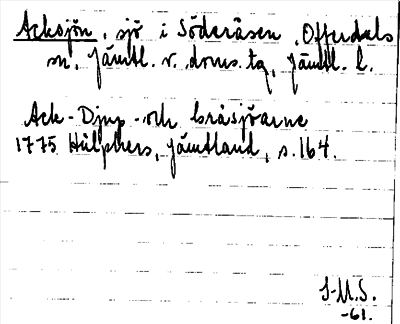 Acksjön, sjö i Söderåsen, Offerdals
sn, Jämtl. v. doms. tg, Jämtl. l.
Ack- Djup- och bråsjöarne
1775 Hülphers, Jämtland, s. 164.
J-M.S.
-61.